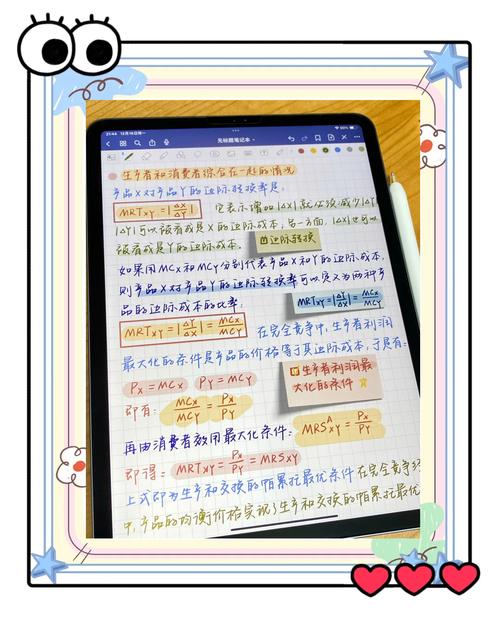 21:44 12月16日周一
无标题笔记本
生产者和消费者综合在一起的情况
产品X对产品Y的边际转换率是:
MRTxY=|ΔX/ΔY| 它表示增加|ΔX|就必须减少|ΔY|
|ΔY|可以被看成是X的边际成本,另一方面,|ΔX|也可以
被看成是Y的边际成本.
边际转换
如果用MCx和MCY分别代表产品X和Y的边际成本,
则产品X对产品Y的边际转换率可以定义为两种产
品的边际成本的比率.
MRTxY=|ΔY/ΔX|=MCx/MCY
MRTxY=|ΔY/ΔX|=MCx/MCY 在完全竞争中,生产者利润
最大化的条件是产品的价格等于其边际成本,于是有:
Px=MCx PY=MCY
生产者利润最
大化的条件
即有: MCx/MCY=Px/PY
再由消费者效用最大化条件: MRS^A_XY=Px/PY
即得: MRTxY=Px/PY=MRSxY
上式即为生产和交换的帕累托最优条件在完全竞争经
中,产品的均衡价格实现了生产和交换的帕累托最优